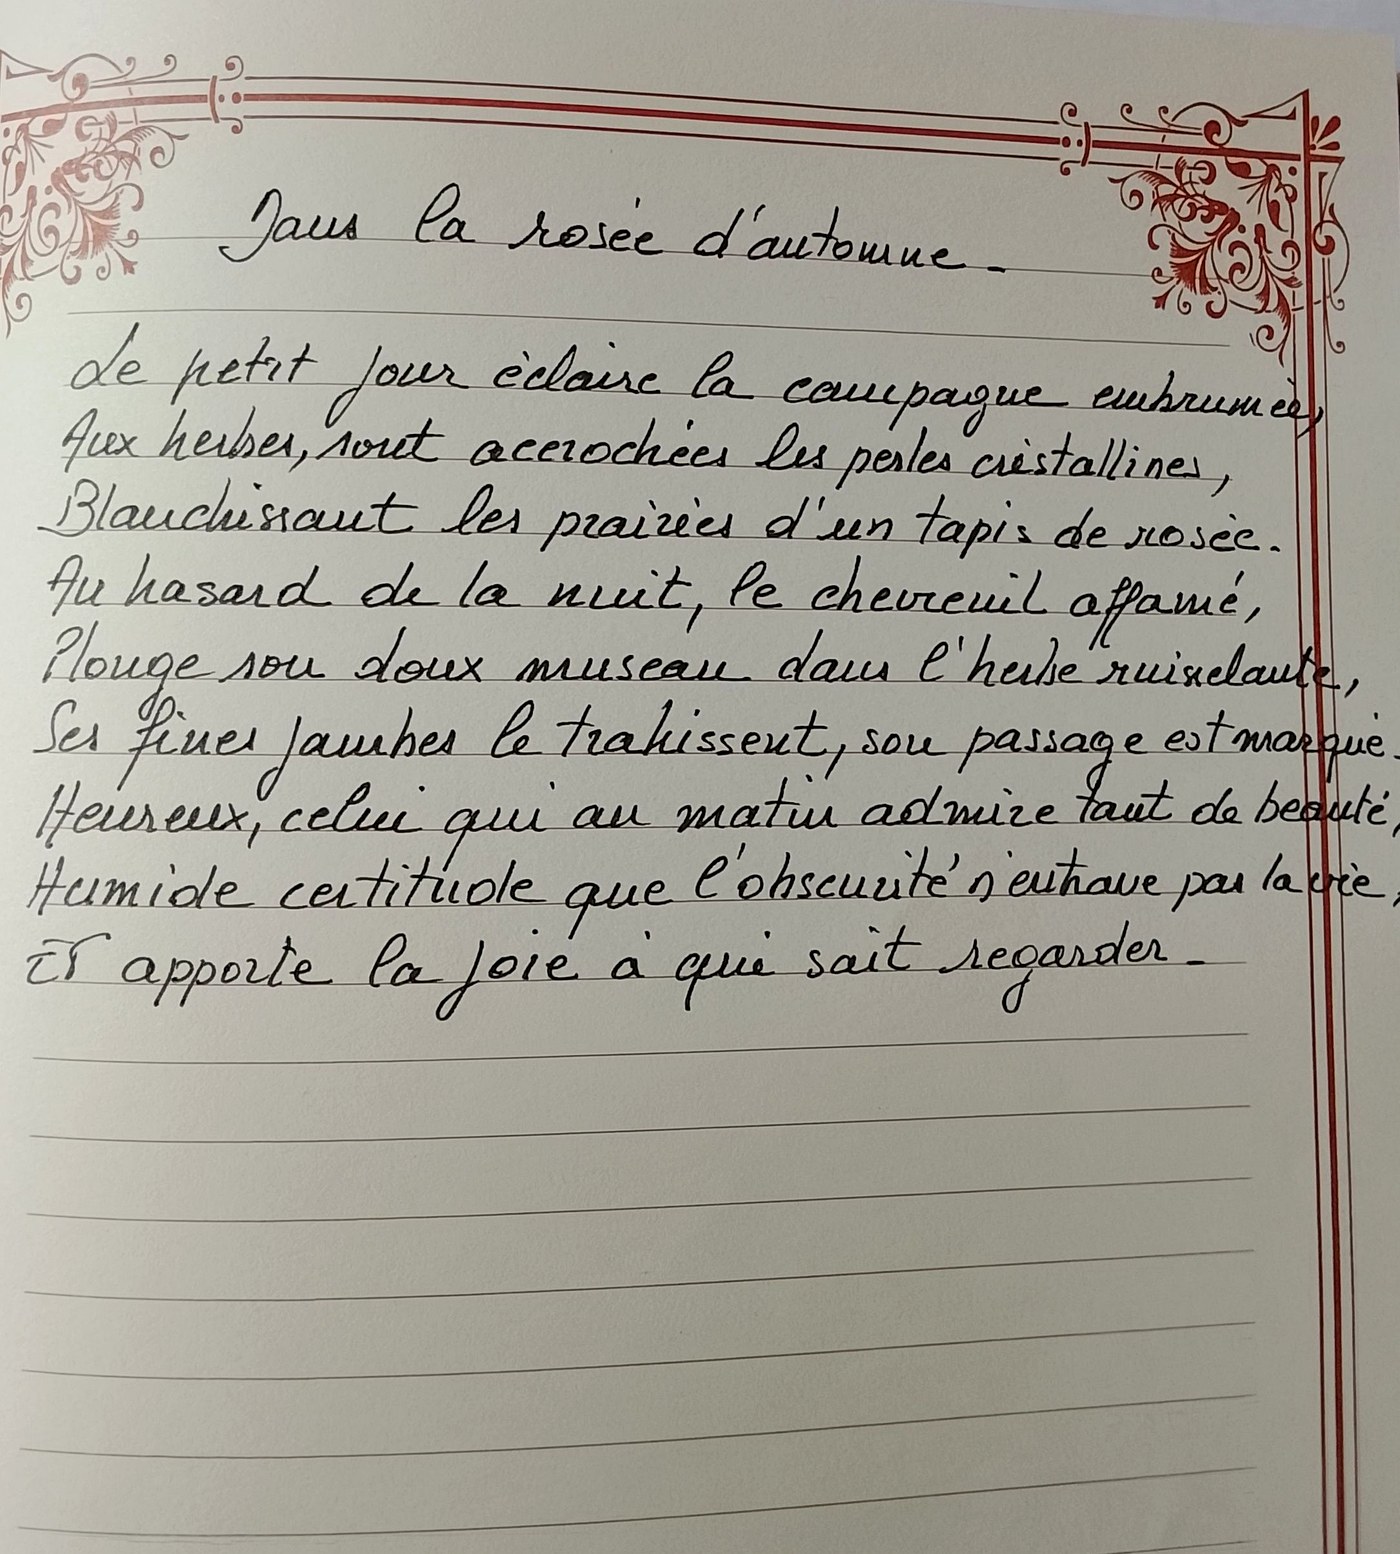 Dans la rosée d'automne.
Le petit jour éclaire la campagne embrumée,
Aux herbes, sont accrochées les perles cristallines,
Blanchissant les prairies d'un tapis de rosée.
Au hasard de la nuit, le chevreuil affamé,
Plonge son doux museau dans l'herbe ruisselante,
Ses fines jambes le trahissent, son passage est marqué.
Heureux, celui qui au matin admire tant de beauté,
Humide certitude que l'obscurité n'entrave pas la vie,
Et apporte la joie à qui sait regarder.